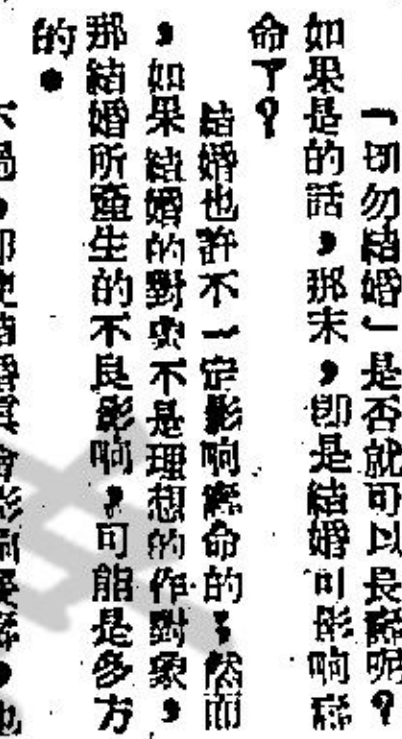 「切勿結婚」是否就可以長壽呢?
如果是的話,那末,卽是結婚可影响壽
命了?
結婚也許不一定影响壽命的;然而
,如果結婚的對象不是理想的作對象,
那結婚所產生的不良影响,可能是多方
的。
不過,卽使結婚眞會影响壽,也